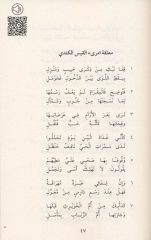 معلقة امرىء القيس الكندي
١ قفا نبك من ذكرى حبيب ومنزل
بسقط اللوى بين الدخول فحومل
٢ فتوضح فالمقراة لم يعف رسمها
لما نسجتها من جنوب وشمأل
٣ ترى بعر الآرام في عرصاتها
وقيعانها كأنه حب فلفل
٤ كأني غداة البين يوم تحملوا
لدى سمرات الحي ناقف حنظل
٥ وقوفا بها صحبي علي مطيهم
يقولون لا تهلك أسى وتجمل
٦ وإن شفائي عبرة مهراقة
فهل عند رسم دارس من معول
٧ كدأبك من أم الحويرث قبلها
وجارتها أم الرباب بمأسل
٤٧